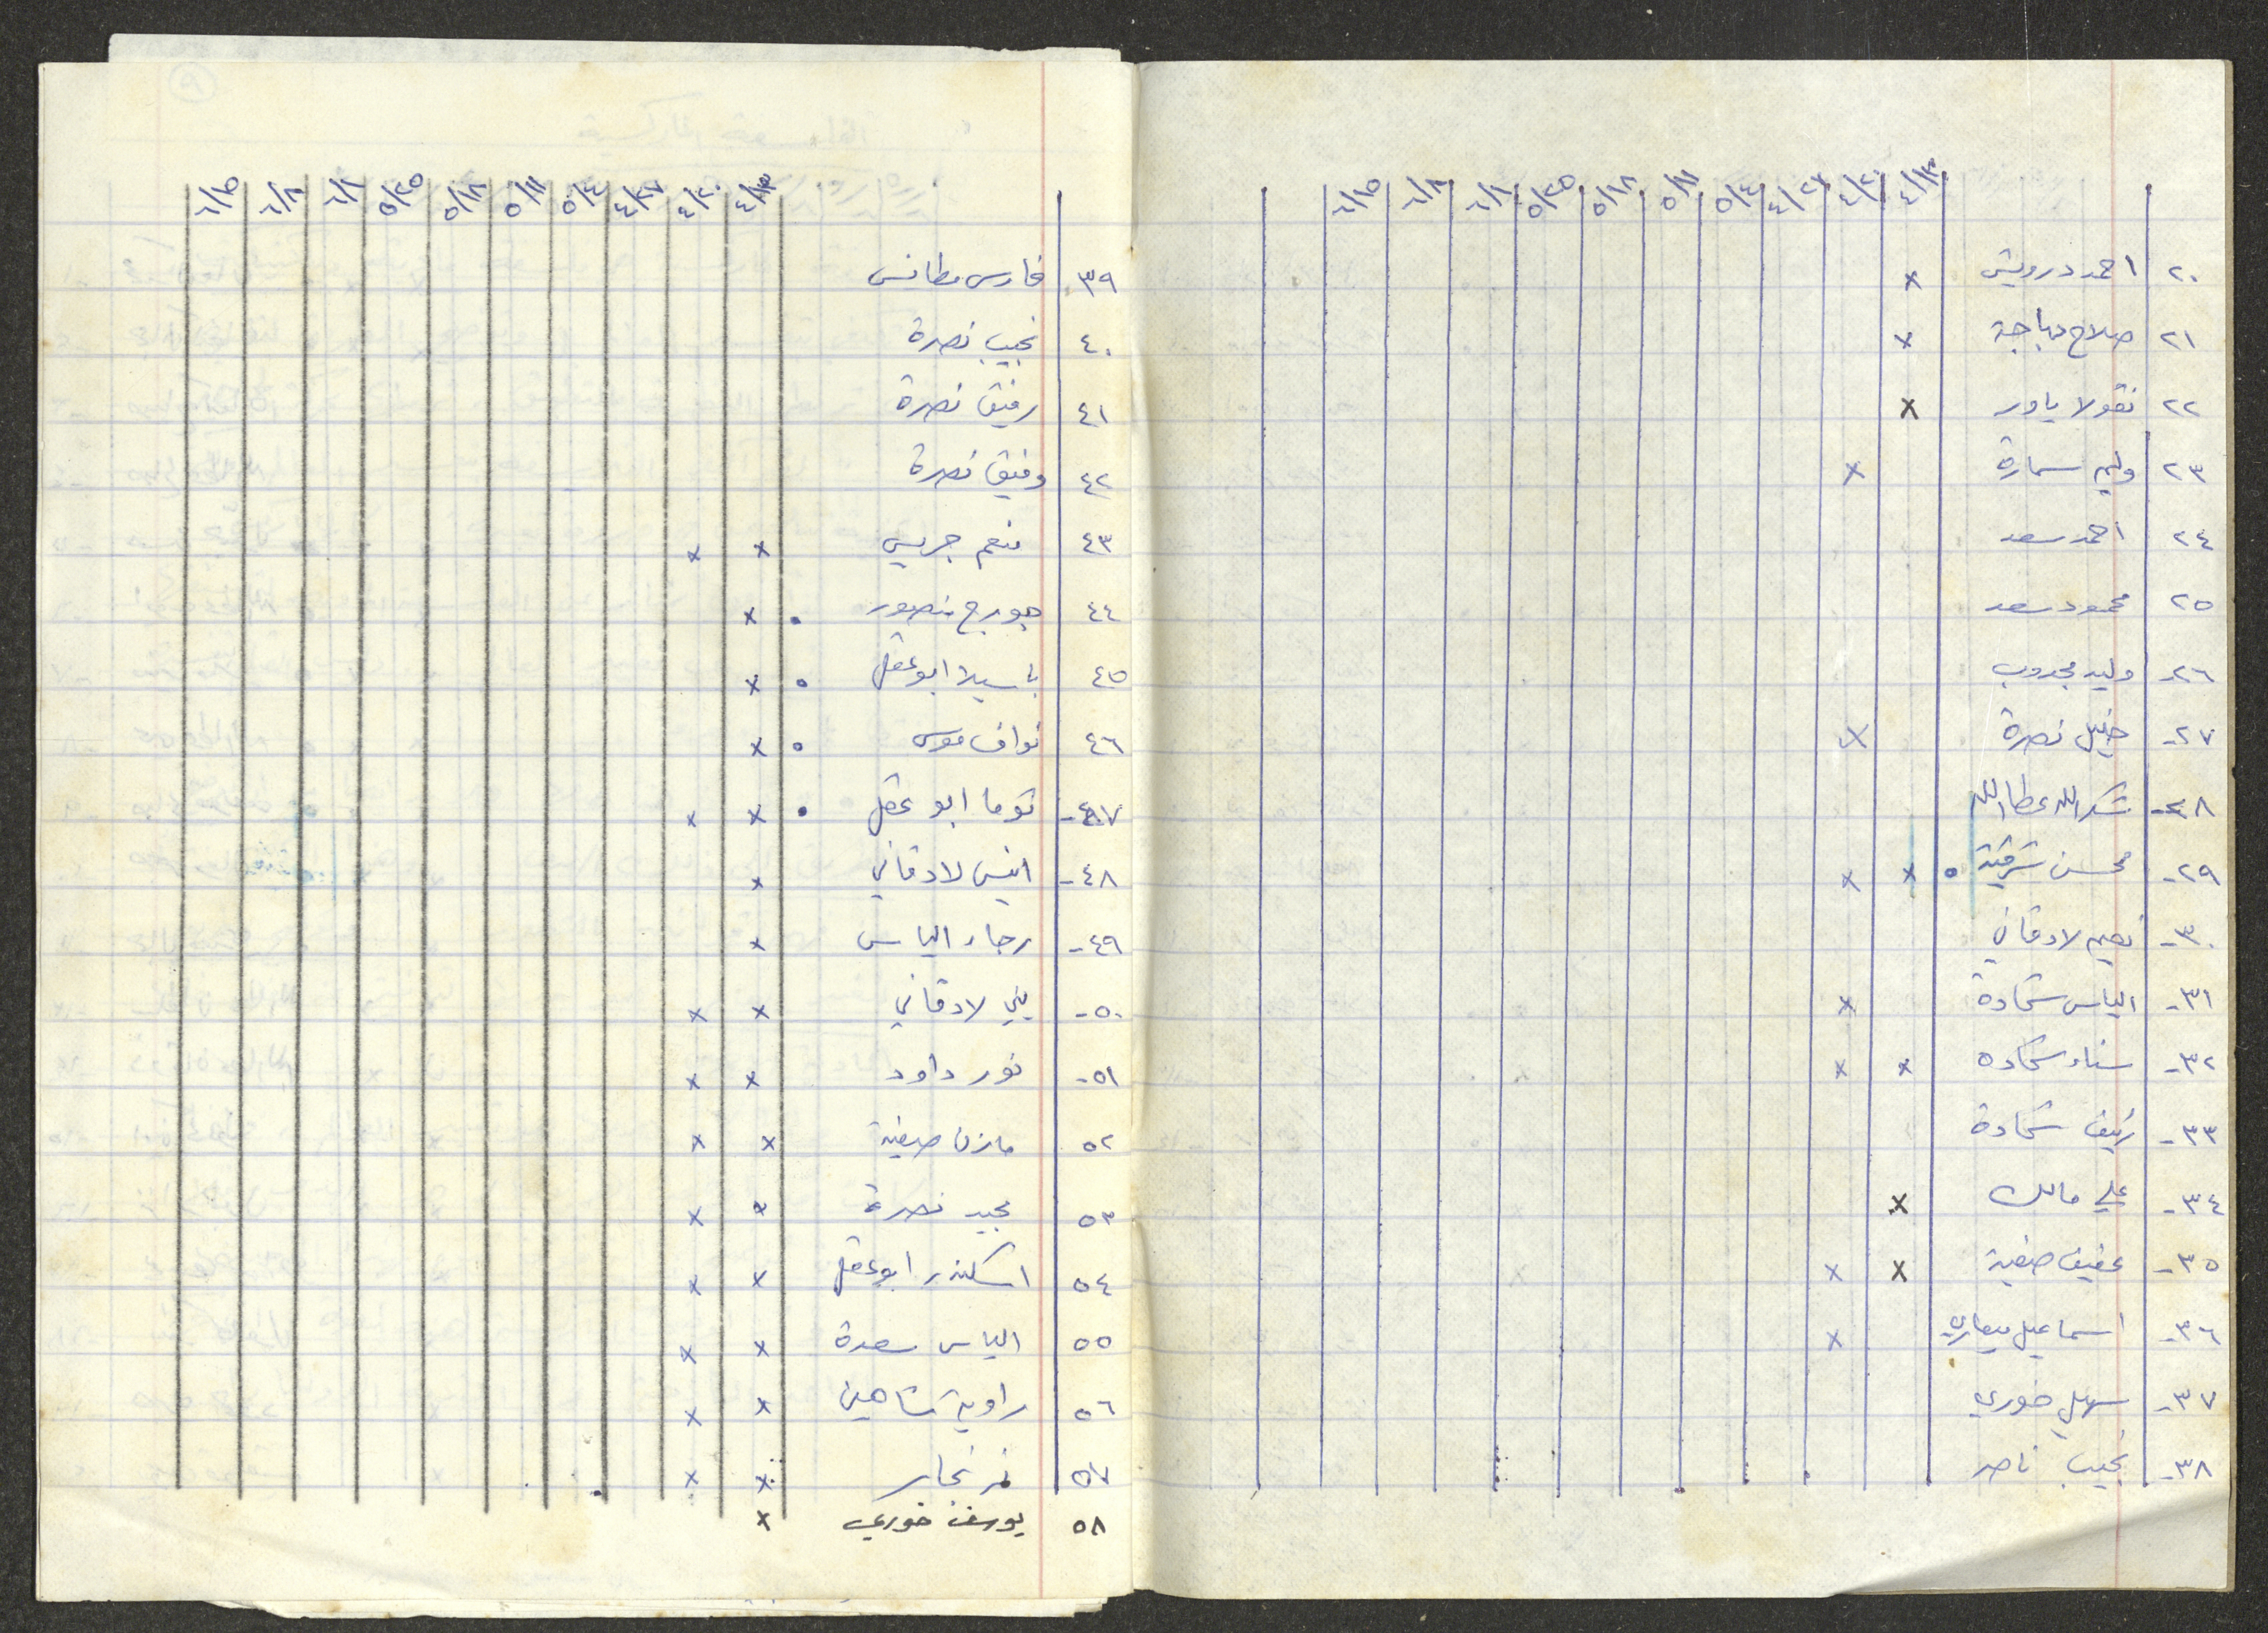 ٤/١٣ ٤/٢٠ ٤/٢٧ ٥/٤ ٥/١١ ٥/١٨ ٥/٢٥ ٦/١ ٦/٨ ٦/١٥
٢٠ احمد درويش x
٢١ صلاح دباجة x
٢٢ نقولا ياور x
٢٣ وليم سمارة x
٢٤ احمد سعد
٢٥ محمود سعد
٢٦- وليد مجدوب
٢٧- خليل نصرة x
٢٨- شكرالله عطاالله
٢٩- محسن شرقية ٥ x x
٣٠- نعيم لادقاني
٣١- الياس شحادة x
٣٢- سناء شحاده x x
٣٣- رئيف شحادة
٣٤- علي مالك x
٣٥- عفيف صفية x x
٣٦- اسماعيل ميعاري x
٣٧- سهيل خوري
٣٨- نجيب ناصر
٤/١٣ ٤/٢٠ ٤/٢٧ ٥/٤ ٥/١١ ٥/١٨ ٥/٢٥ ٦/١ ٦/٨ ٦/١٥
٣٩ فارس مطانس
٤٠ نجيب نصرة
٤١ رفيق نصرة
٤٢ وفيق نصرة
٤٣ منعم جريس x x
٤٤ جورج منصور . x
٤٥ باسيلا ابو عقل ٥ x
٤٦ نواف موسى ٥ x
٤٧- توما ابو عقل . x x
٤٨- انيس لادقاني x
٤٩- رجاء الياس x
٥٠- يني لادقاني x x
٥١- نور داود x x
٥٢ مازن صفية x x
٥٣ مجيد نصرة x x
٥٤ اسكندر ابو عقل x x
٥٥ الياس سعدة x x
٥٦ راوية شاهين x x
٥٧ نمر نجار x x
٥٨ يوسف خوري x